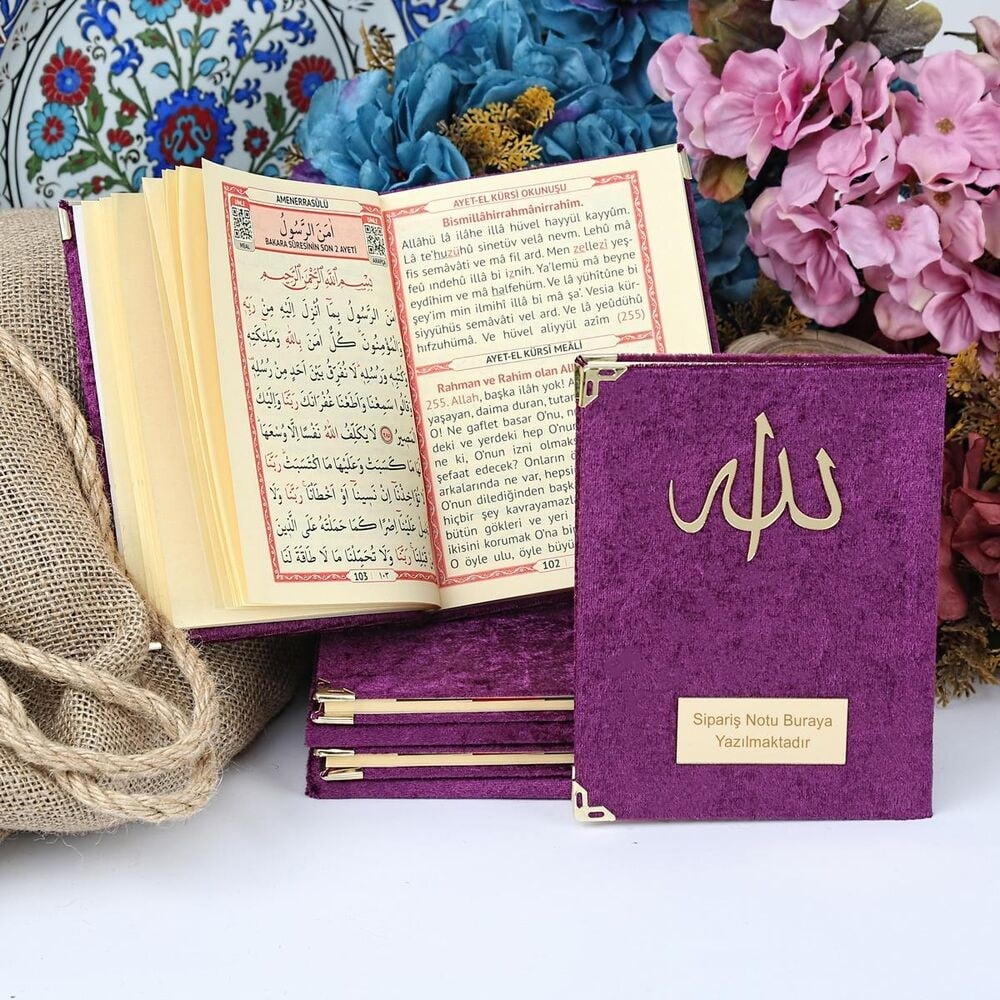 AMENERRASÛLÜ
اٰمَنَ الرَّسُولُ
BAKARA SÛRESİNİN SON 2 AYETİ
MEAL
ARAPÇA
بِسْمِ اللّٰهِ الرَّحْمٰنِ الرَّحِيمِ
اٰمَنَ الرَّسُولُ بِمَٓا اُنْزِلَ اِلَيْهِ مِنْ رَبِّه۪
وَالْمُؤْمِنُونَۜ كُلٌّ اٰمَنَ بِاللّٰهِ وَمَلٰٓئِكَتِه۪
وَكُتُبِه۪ وَرُسُلِه۪ۜ لَا نُفَرِّقُ بَيْنَ اَحَدٍ مِنْ رُسُلِه۪
وَقَالُوا سَمِعْنَا وَاَطَعْنَا غُفْرَانَكَ رَبَّنَا وَاِلَيْكَ
الْمَص۪يرُ ﴿٢٨٥﴾ لَا يُكَلِّفُ اللّٰهُ نَفْسًا اِلَّا وُسْعَهَا
لَهَا مَا كَسَبَتْ وَعَلَيْهَا مَا اكْتَسَبَتْۜ رَبَّنَا
لَا تُؤَاخِذْنَٓا اِنْ نَس۪ينَٓا اَوْ اَخْطَأْنَاۚ رَبَّنَا وَلَا
تَحْمِلْ عَلَيْنَٓا اِصْرًا كَمَا حَمَلْتَهُ عَلَى الَّذ۪ينَ
مِنْ قَبْلِنَاۚ رَبَّنَا وَلَا تُحَمِّلْنَا مَا لَا طَاقَةَ لَنَا
103 ١٠٣
AYET-EL KÜRSİ OKUNUŞU
Bismillâhirrahmânirrahîm.
Allâhü lâ ilâhe illâ hüvel hayyül kayyûm.
Lâ te'huzühû sinetüv velâ nevm. Lehû mâ
fis semâvâti ve mâ fil ard. Men zellezi yeş-
feû ındehû illâ bi iznih. Ya'lemü mâ beyne
eydîhim ve mâ halfehüm. Ve lâ yühîtûne bi
şey'im min ilmihî illâ bi mâ şa'. Vesia kür-
siyyühüs semâvâti vel ard. Ve lâ yeûdühû
hıfzuhümâ. Ve hüvel aliyyül azîm (255)
AYET-EL KÜRSİ MEÂLİ
Rahman ve Rahim olan
255. Allah, başka ilâh yok!
yaşayan, daima duran,
O! Ne gaflet basar O'nu,
deki ve yerdeki hep
ne ki, O'nun izni
şefaat edecek? Onların
arkalarında ne var,
O'nun dilediğinden
hiçbir şey
bütün gökleri ve yeri
ikisini korumak O'na
O öyle ulu, öyle
102
الله
Sipariş Notu Buraya
Yazılmaktadır